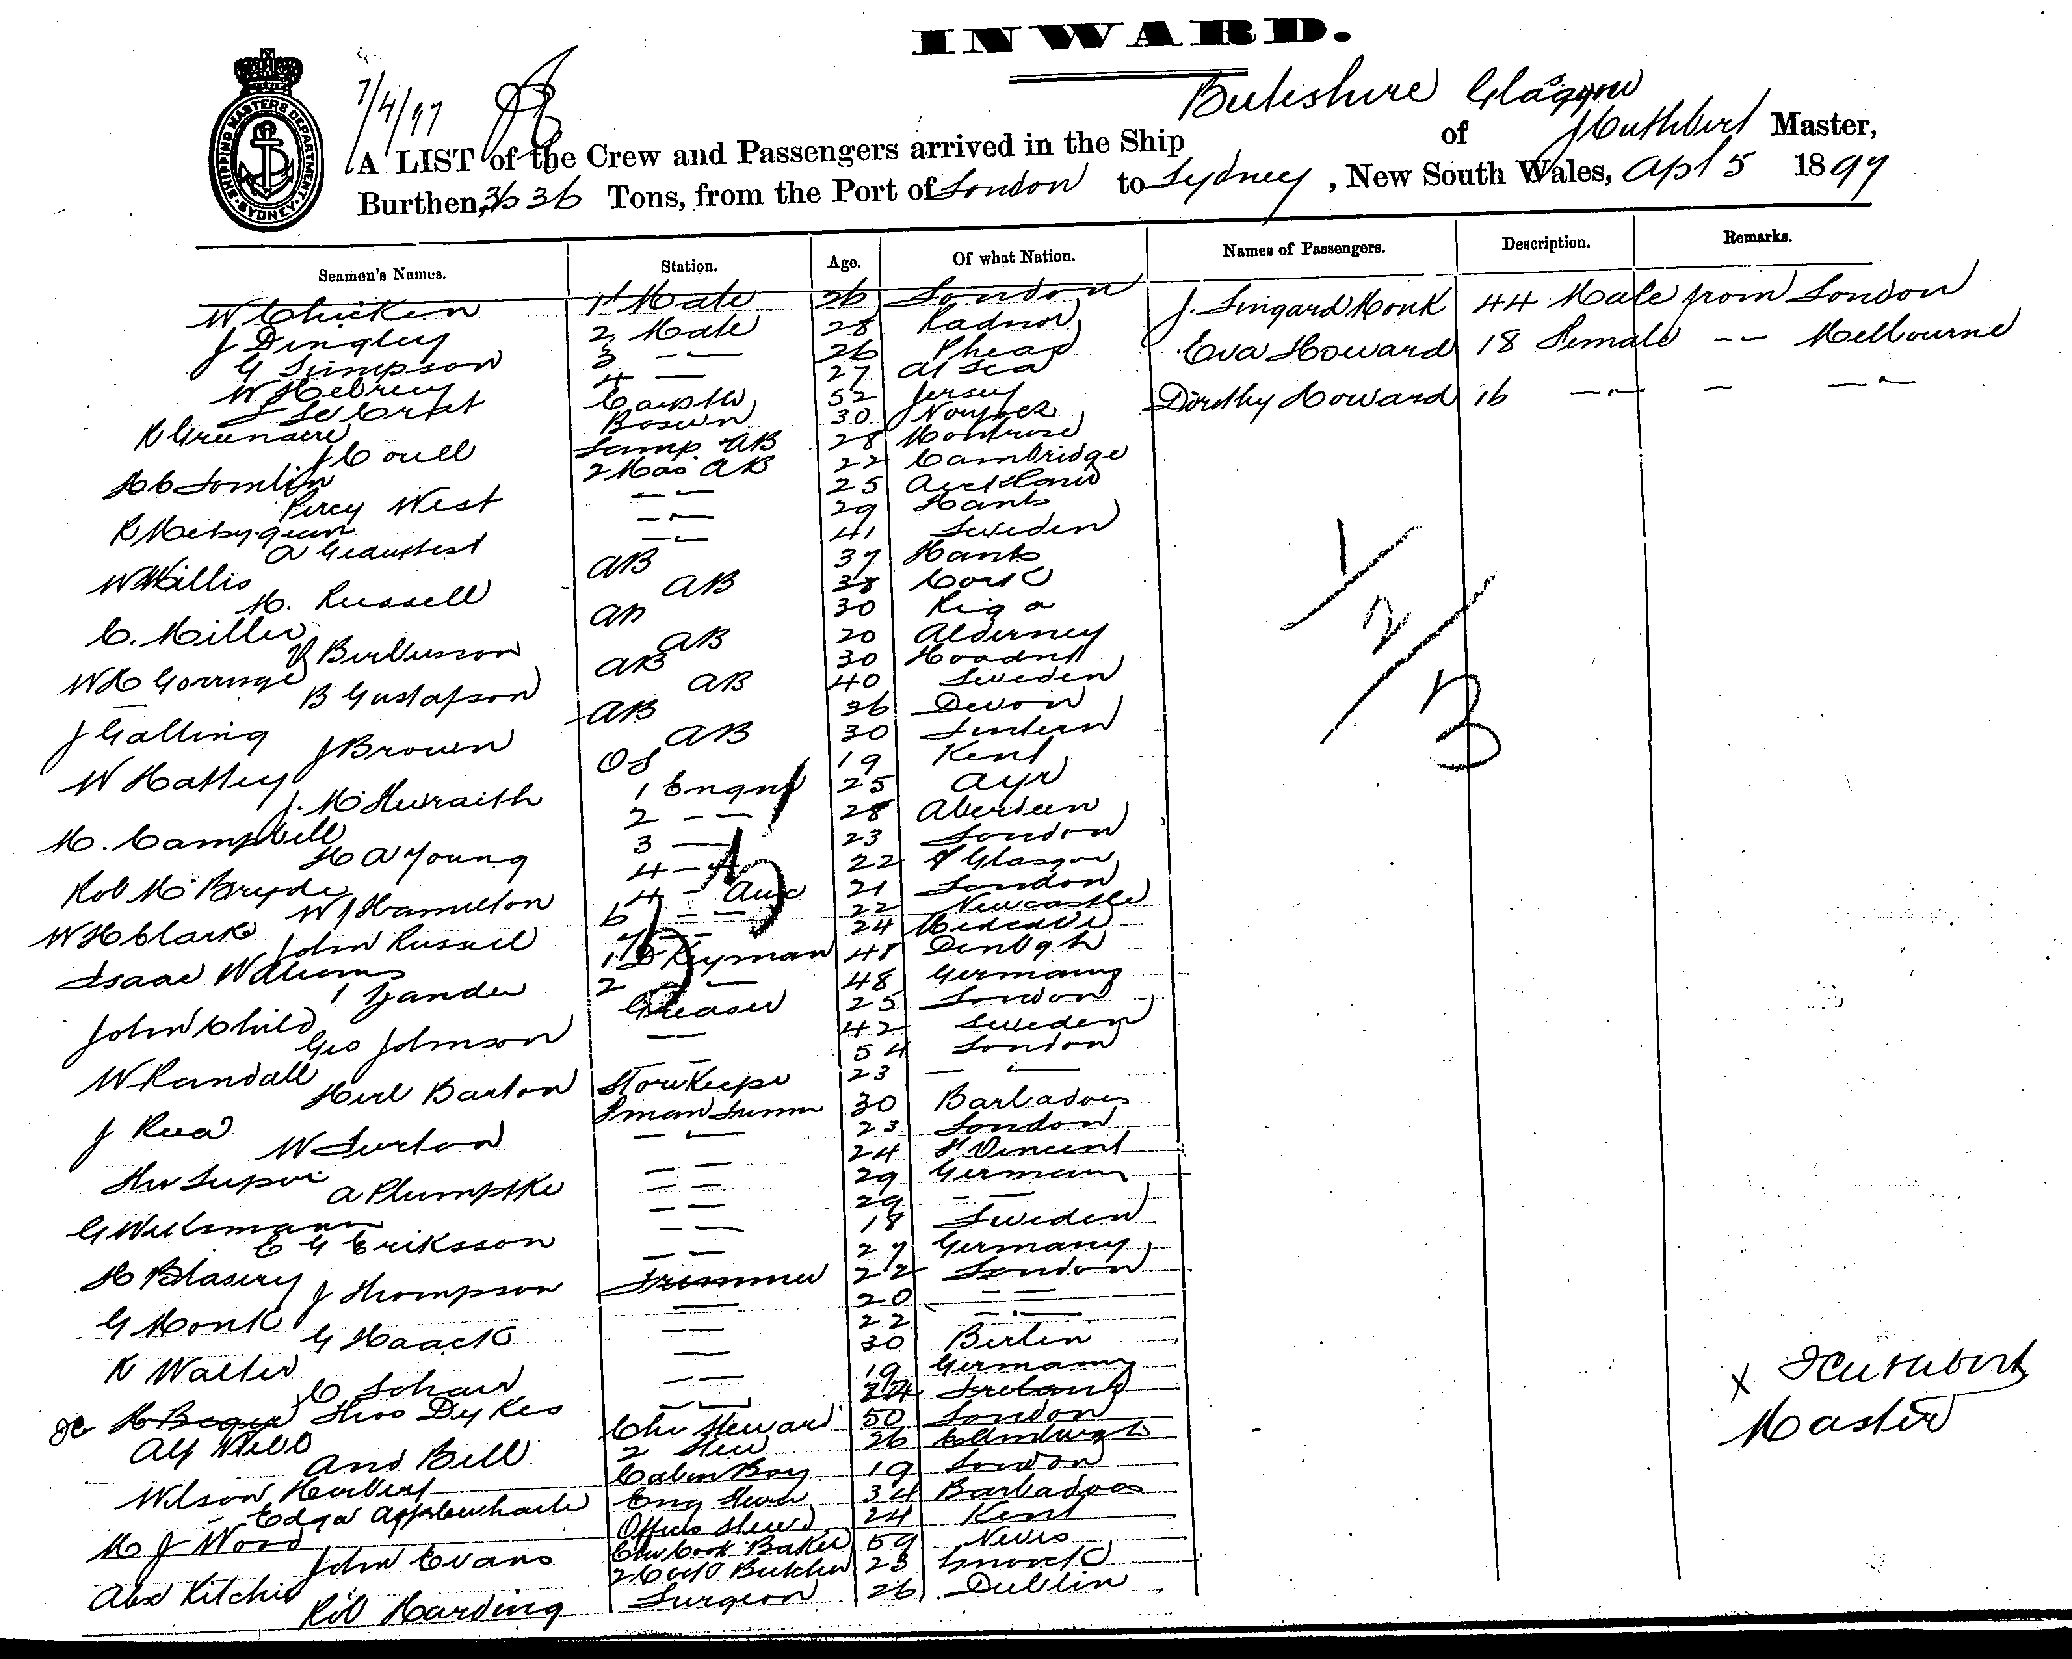 INWARD.
SHIPPING MASTERS DEPARTMENT
SYDNEY
7/4/97
Buteshire Glasgow
A LIST of the Crew and Passengers arrived in the Ship of J Cuthbert Master,
Burthen, 3636 Tons, from the Port of London to Sydney, New South Wales, Apl 5 1897
Seamen's Names. Station. Age. Of what Nation. Names of Passengers. Description. Remarks.
W Chicken 1st Mate 26 London J. Lingard Monk 44 Male from London
J Dingley 2 Mate 28 Radnor Eva Howard 18 Female -- Melbourne
G Simpson 3 -- 26
4 -- 27 at Sea
52 Jersey Dorothy Howard 16 -- - --
Bosun 30
J Couell Lamp AB 28 Montrose
H C Tomlin 2 Mas AB 22 Cambridge
Percy West -- 25 Auckland
-- 29 Hants
-- 41 Sweden
W Willis AB 37 Hants
M. Russell AB 38 Cork
C. Miller AB 30 Riga
AB 20 Alderney
W H Gorringe AB 30
B Gustafson AB 40 Sweden
J Galling AB 36 Devon
J Brown AB 30
W Hattey OS 19 Kent
J. McIlwraith 1 Engnr 25 Ayr
M. Campbell 2 -- 28 Aberdeen
H A Young 3 -- 23 London
Rob McBryde 4 -- 22 Glasgow
W J Hamilton 4 - Aux 21 London
W H Clark 6 -- 22 Newcastle
John Russell 7 -- 24
Isaac Williams 1 Dkyman 48 Denbgh
Zander 2 -- 48 Germany
John Child Greaser 25 London
Geo Johnson -- 42 Sweden
W Randall -- 54 London
Herb Barton Storekeepr 23 -- --
J Rea Fman 30 Barbados
W Surton -- 23 London
-- 24 St Vincent
A Plumptke -- 29 Germany
-- 29 --
E G Eriksson -- 18 Sweden
H Blasery -- 27 Germany
J Thompson Trimmer 22 London
G Monk -- 20 --
G Haack -- 22 --
K Walter -- 30 Berlin
C Schaer -- 19 Germany
H Beger Thos Dykes -- 24 Ireland
Alf Webb Chf Steward 50 London
And Bell 2 Stew 26 Edinburgh
Wilson Herbert Cabin Boy 19 London
Edgar Applewhaite Eng Stew 34 Barbados
M J Wood Officrs Stewd 24 Kent
John Evans Chf Cook Baker 59 Nevis
Alex Ritchie 2 Cook Butcher 23
Rob Harding Surgeon 26 Dublin
1
2
3
x J Cuthbert
Master